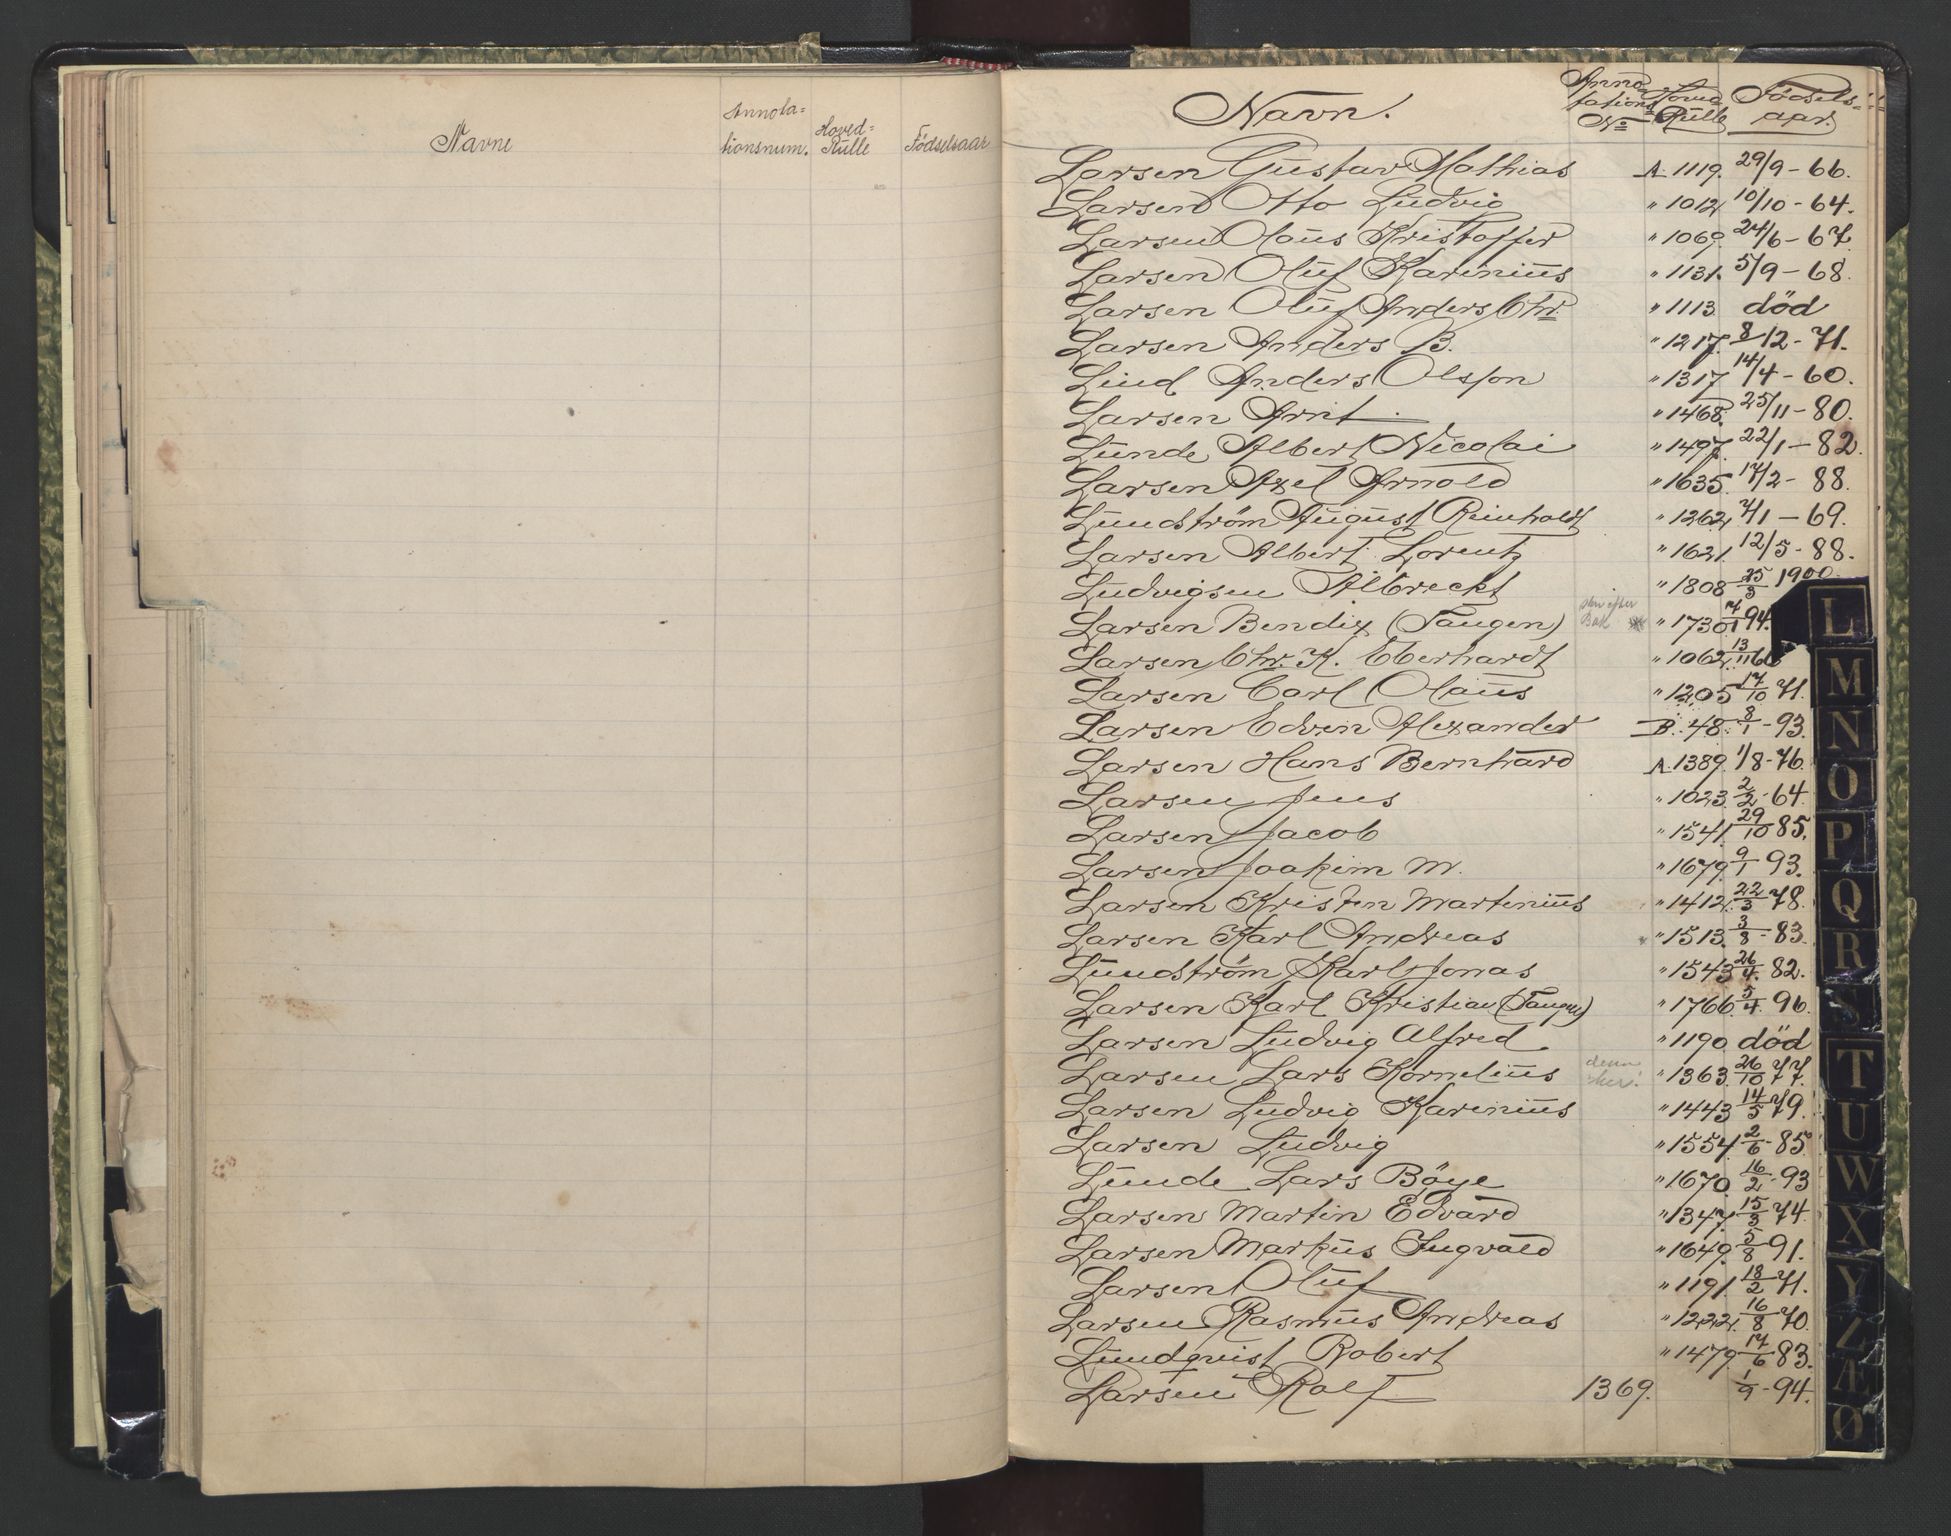 Navne
Annota=
tionsnum.
Hoved=
Rulle
Födselsaar
Navn.
Anno
tations
No
Rulle
Födsels=
aar.
Larsen Gustav Mathias A. 1119. 29/9 - 66.
Larsen Otto Ludvig " 1012 10/10 - 64.
Larsen Olaus Kristoffer " 1069. 24/6 - 67.
Larsen Oluf Karinius " 1131. 5/9 - 68.
Larsen Oluf Anders Chr. " 1113 död
Larsen Anders B. " 1217. 8/12 - 71.
Lind Anders Olsson " 1317 14/4 - 60.
Larsen Arnt " 1468. 25/11 - 80.
Lunde Albert Nicolai " 1497. 22/1 - 82.
Larsen Axel Arnold " 1635. 17/2 - 88.
Lundström August Reinholdt " 1262. 7/1 - 69.
Larsen Albert Lorentz " 1621. 12/5 - 88.
Ludvigsen Albreckt " 1808 25/3 1900.
Larsen Bendix (Tangen) " 1730 94.
Larsen Chr. K. Eberhardt " 1062. 13/11 66
Larsen Carl Olaus " 1205 17/10 71.
Larsen Edvin Alexander B. 48. 8/1 - 93.
Larsen Hans Bernhard A. 1389. 1/8 - 76.
Larsen Jens " 1023. 2/2 - 64.
Larsen Jacob " 1541. 29/10 85.
Larsen Joakim M. " 1679. 9/1 93.
Larsen Kristen Martinius " 1412. 22/3 78.
Larsen Karl Andreas " 1513. 3/8 - 83.
Lundström Karl Jonas " 1543. 26/4. 82.
Larsen Karl Kristian (Tangen) " 1766. 5/4 96.
Larsen Ludvig Alfred " 1190 död
Larsen Lars Kornelius denne her! " 1363. 26/10 77.
Larsen Ludvig Karinius " 1443 14/5 79.
Larsen Ludvig " 1554. 2/6 - 85.
Lunde Lars Böye " 1670. 16/2 - 93
Larsen Martin Edvard " 1347. 15/3 74.
Larsen Markus Ingvald " 1649. 5/8 - 91.
Larsen Oluf " 1191. 18/2 71.
Larsen Rasmus Andreas " 1222. 16/8 70.
Lundqvist Robert " 1479. 17/6 83.
Larsen Rolf 1369. 1/9 - 94.
L
M
N
O
P
Q
R
S
T
U
W
X
Y
Z
Æ
Ø